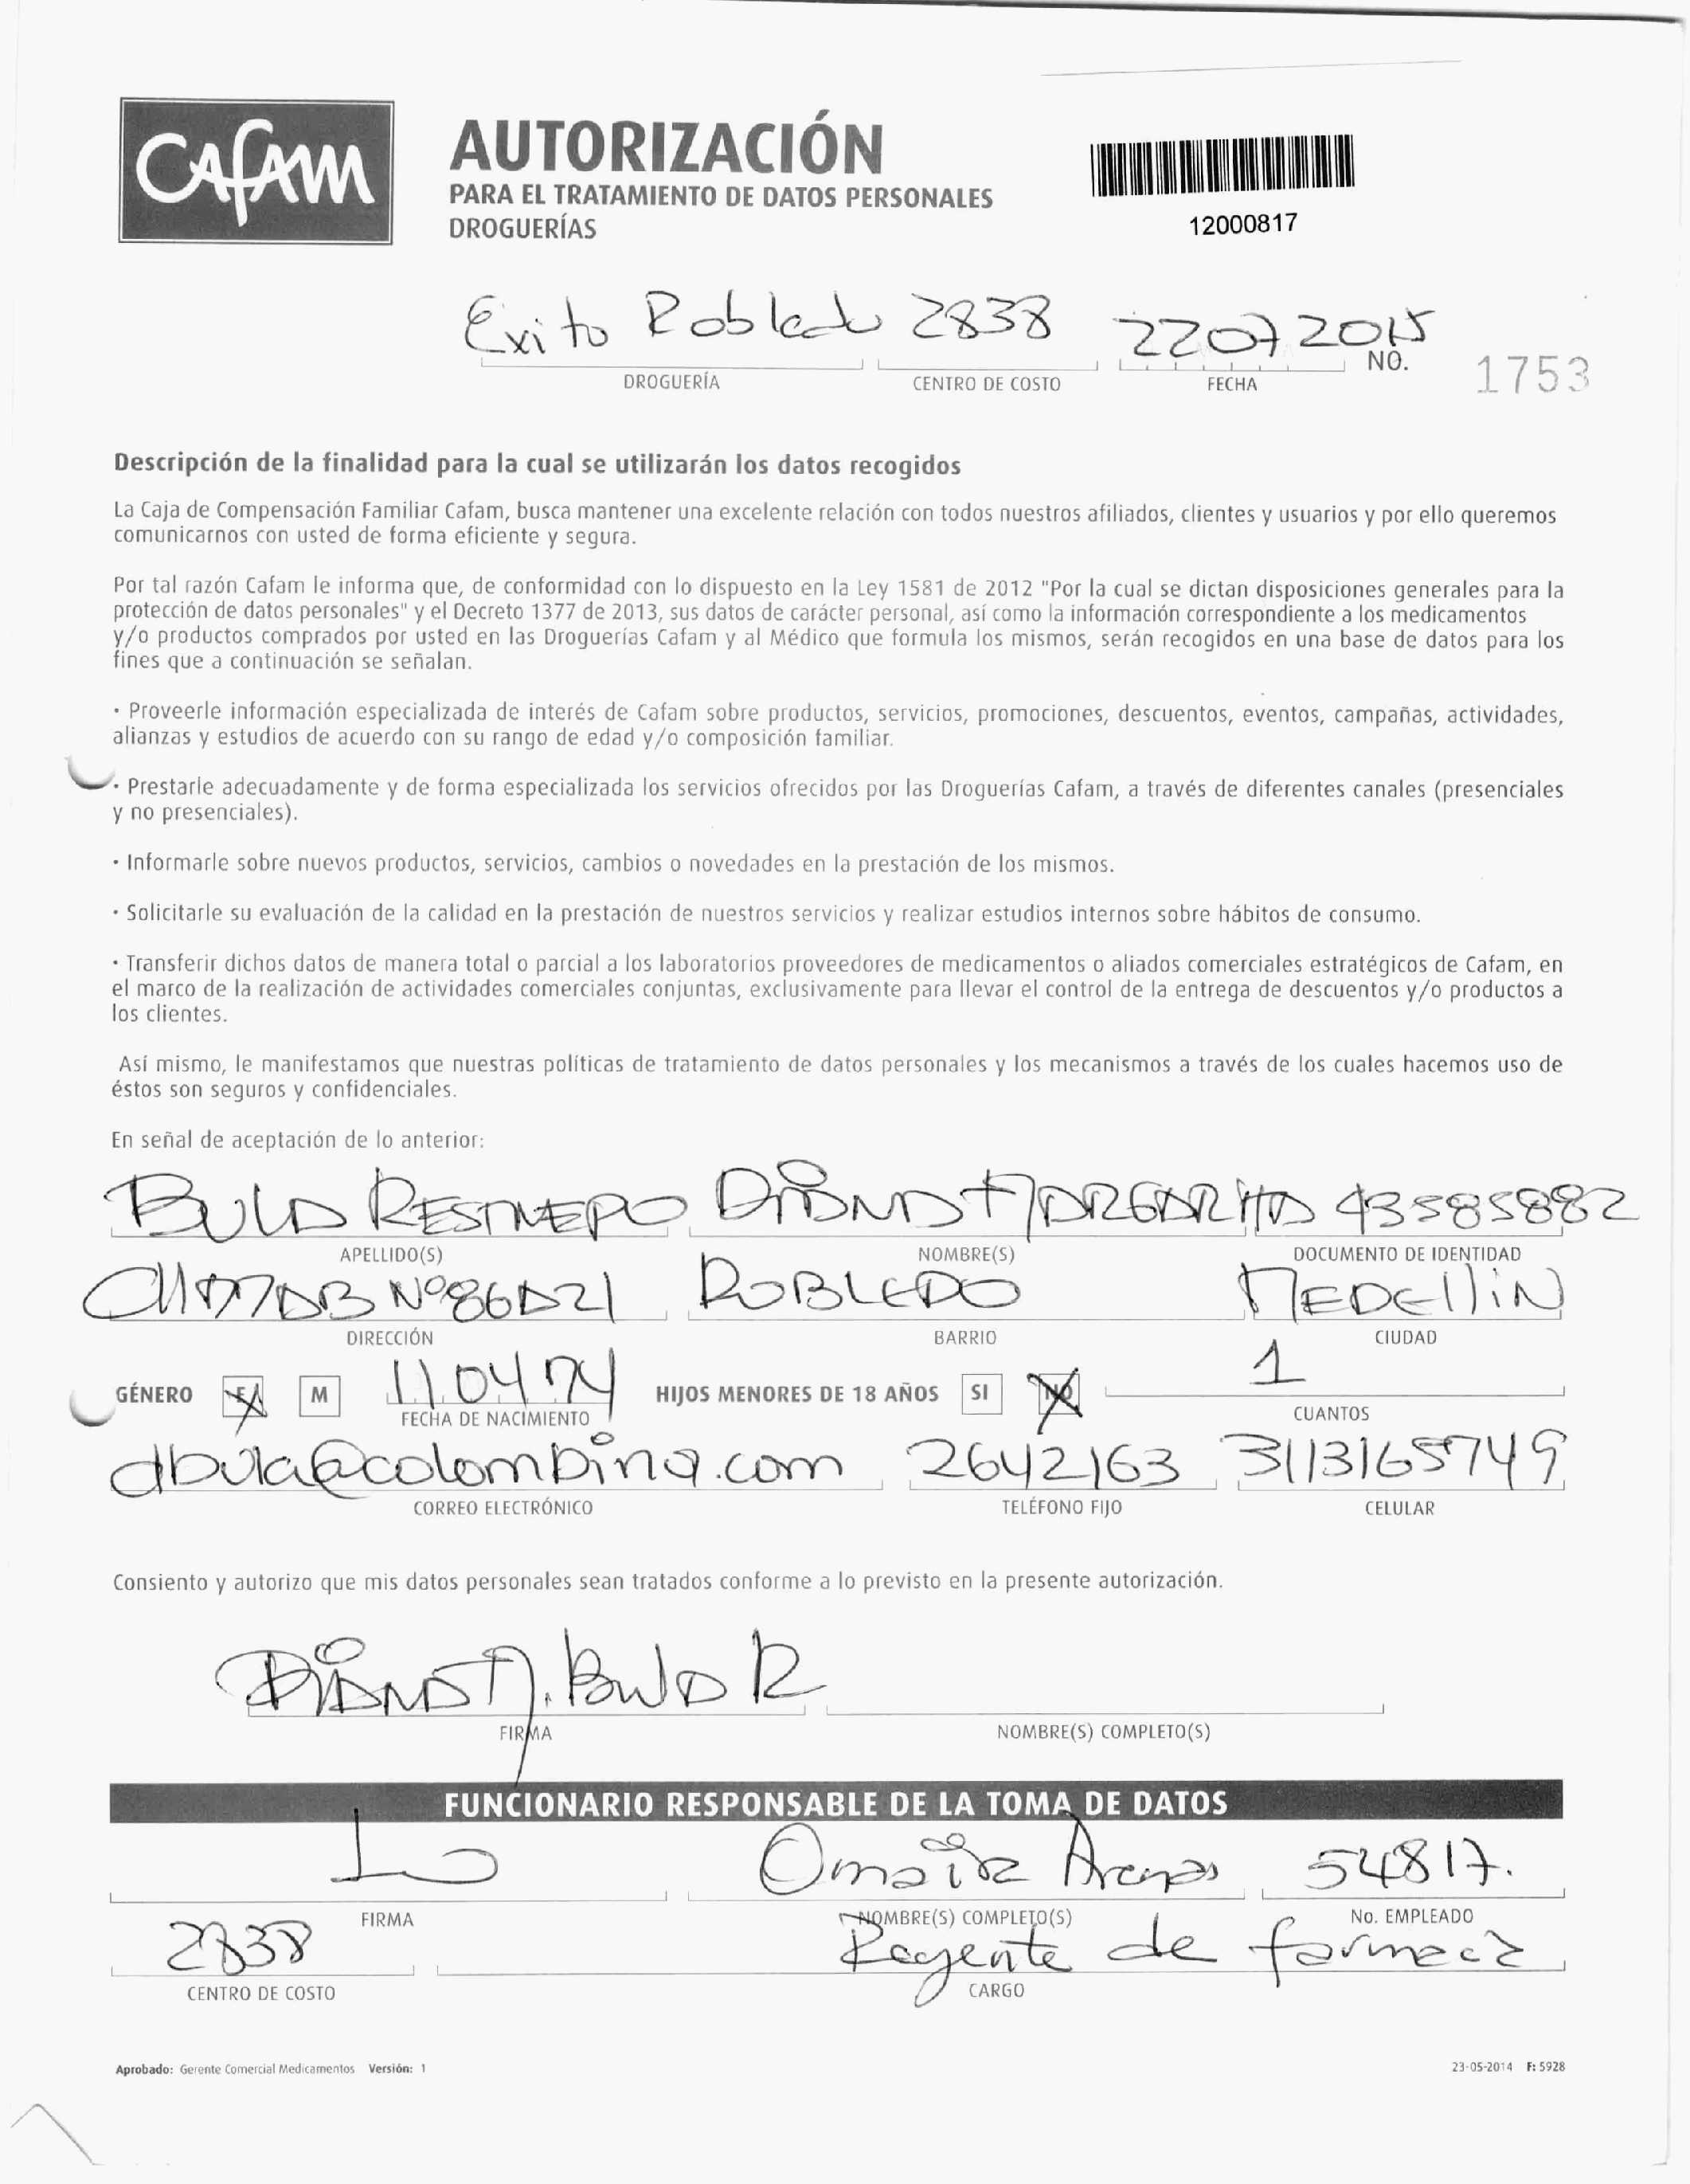 CAFAM
AUTORIZACIÓN
PARA EL TRATAMIENTO DE DATOS PERSONALES
DROGUERÍAS
12000817
Exito Robledo 2838 22072015
DROGUERÍA CENTRO DE COSTO FECHA NO. 1753
Descripción de la finalidad para la cual se utilizarán los datos recogidos
La Caja de Compensación Familiar Cafam, busca mantener una excelente relación con todos nuestros afiliados, clientes y usuarios y por ello queremos
comunicarnos con usted de forma eficiente y segura.
Por tal razón Cafam le informa que, de conformidad con lo dispuesto en la Ley 1581 de 2012 "Por la cual se dictan disposiciones generales para la
protección de datos personales" y el Decreto 1377 de 2013, sus datos de carácter personal, así como la información correspondiente a los medicamentos
y/o productos comprados por usted en las Droguerías Cafam y al Médico que formula los mismos, serán recogidos en una base de datos para los
fines que a continuación se señalan.
· Proveerle información especializada de interés de Cafam sobre productos, servicios, promociones, descuentos, eventos, campañas, actividades,
alianzas y estudios de acuerdo con su rango de edad y/o composición familiar.
· Prestarle adecuadamente y de forma especializada los servicios ofrecidos por las Droguerías Cafam, a través de diferentes canales (presenciales
y no presenciales).
· Informarle sobre nuevos productos, servicios, cambios o novedades en la prestación de los mismos.
· Solicitarle su evaluación de la calidad en la prestación de nuestros servicios y realizar estudios internos sobre hábitos de consumo.
· Transferir dichos datos de manera total o parcial a los laboratorios proveedores de medicamentos o aliados comerciales estratégicos de Cafam, en
el marco de la realización de actividades comerciales conjuntas, exclusivamente para llevar el control de la entrega de descuentos y/o productos a
los clientes.
Así mismo, le manifestamos que nuestras políticas de tratamiento de datos personales y los mecanismos a través de los cuales hacemos uso de
éstos son seguros y confidenciales.
En señal de aceptación de lo anterior:
BULA RESTREPO DIANA MARGARITA 43585882
APELLIDO(S) NOMBRE(S) DOCUMENTO DE IDENTIDAD
Nº86A21 ROBLEDO MEDELLIN
DIRECCIÓN BARRIO CIUDAD
GÉNERO F M 110474 HIJOS MENORES DE 18 AÑOS SI NO 1
FECHA DE NACIMIENTO CUANTOS
dbula@colombina.com 2642163 3113165749
CORREO ELECTRÓNICO TELÉFONO FIJO CELULAR
Consiento y autorizo que mis datos personales sean tratados conforme a lo previsto en la presente autorización.
DIANA M. BULA R
FIRMA NOMBRE(S) COMPLETO(S)
FUNCIONARIO RESPONSABLE DE LA TOMA DE DATOS
Omaira Arenas 54817.
FIRMA NOMBRE(S) COMPLETO(S) No. EMPLEADO
2838 Regente de farmacia
CENTRO DE COSTO CARGO
Aprobado: Gerente Comercial Medicamentos Versión: 1 23-05-2014 F: 5928